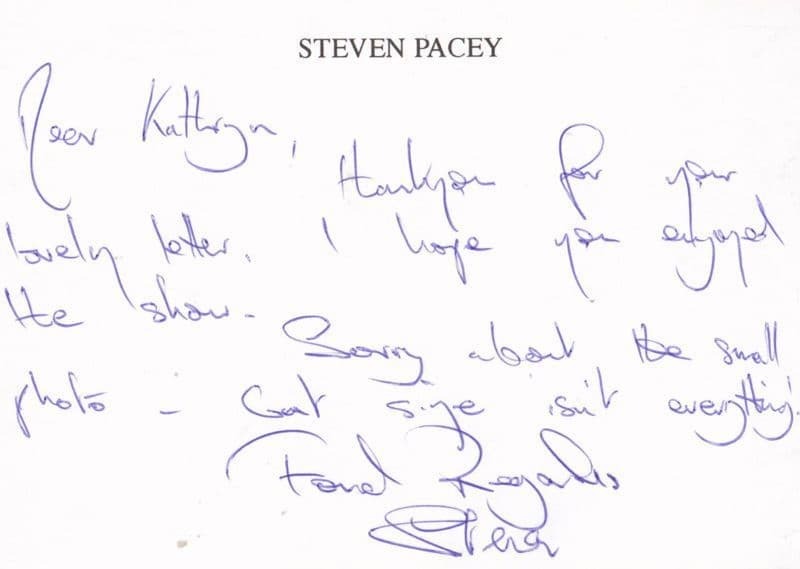 STEVEN PACEY
Dear Kathryn,
Thankyou for your
lovely letter. I hope you enjoyed
the show.
Sorry about the small
photo - but size isn't everything!
Fond Regards
Steven